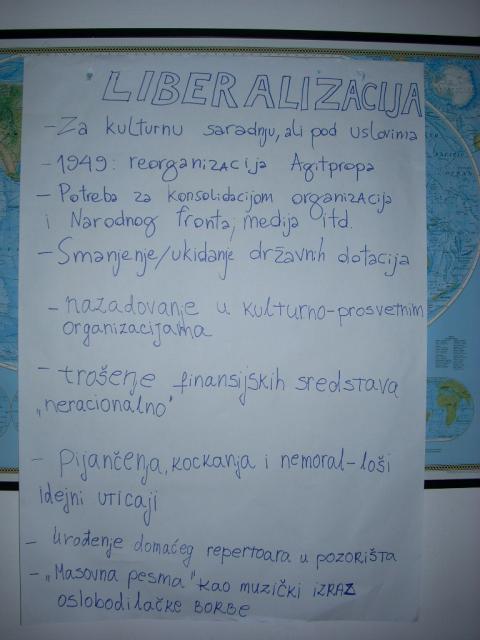 LIBERALIZACIJA
- Za kulturnu saradnju, ali pod uslovima
- 1949: reorganizacija Agitpropa
- Potreba za konsolidacijom organizacija
i Narodnog fronta, medija itd.
- Smanjenje/ukidanje državnih dotacija
- nazadovanje u kulturno-prosvetnim
organizacijama
- trošenje finansijskih sredstava
„neracionalno"
- Pijančenja, kockanja i nemoral-loši
idejni uticaji
- uvođenje domaćeg repertoara u pozorišta
- „Masovna pesma" kao muzički izraz
oslobodilačke borbe